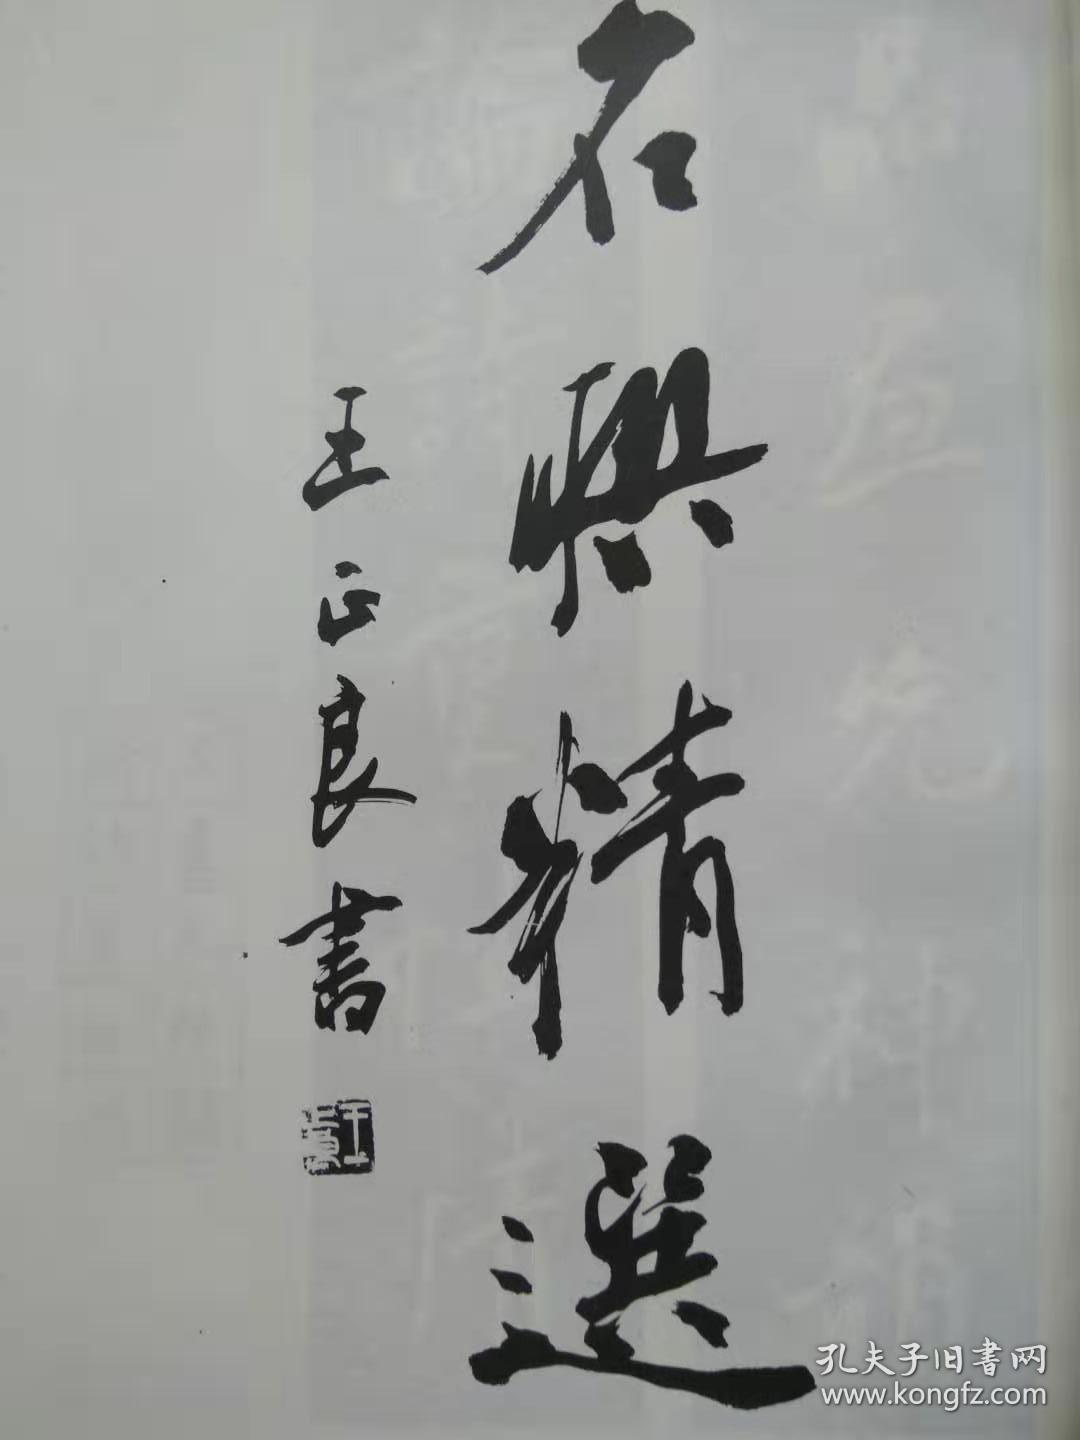 名联精選
王正良書
孔夫子旧書网
www.kongfz.com